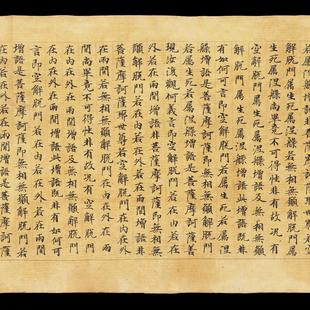 解脫門屬生死屬涅槃若無相無願解脫門屬
生死屬涅槃尚畢竟不可得性非有故況有
空解脫門屬生死屬涅槃增語及無相無願
解脫門屬生死屬涅槃增語此增語既非
有如何可言即空解脫門若屬生死若屬涅
槃增語是菩薩摩訶薩即無相無願解脫門
若屬生死若屬涅槃增語是菩薩摩訶薩善
現汝復觀何義言即空解脫門若在內若在
外若在兩間增語非菩薩摩訶薩即無相無
願解脫門若在內若在外若在兩間增語非
菩薩摩訶薩耶世尊若空解脫門在內在外
在兩間若無相無願解脫門在內在外在兩
間尚畢竟不可得性非有故況有空解脫門
在內在外在兩間增語及無相無願解脫門
在內在外在兩間增語此增語既非有如何可
言即空解脫門若在內若在外若在兩間
增語是菩薩摩訶薩即無相無願解脫門若
在內若在外若在兩間增語是菩薩摩訶薩